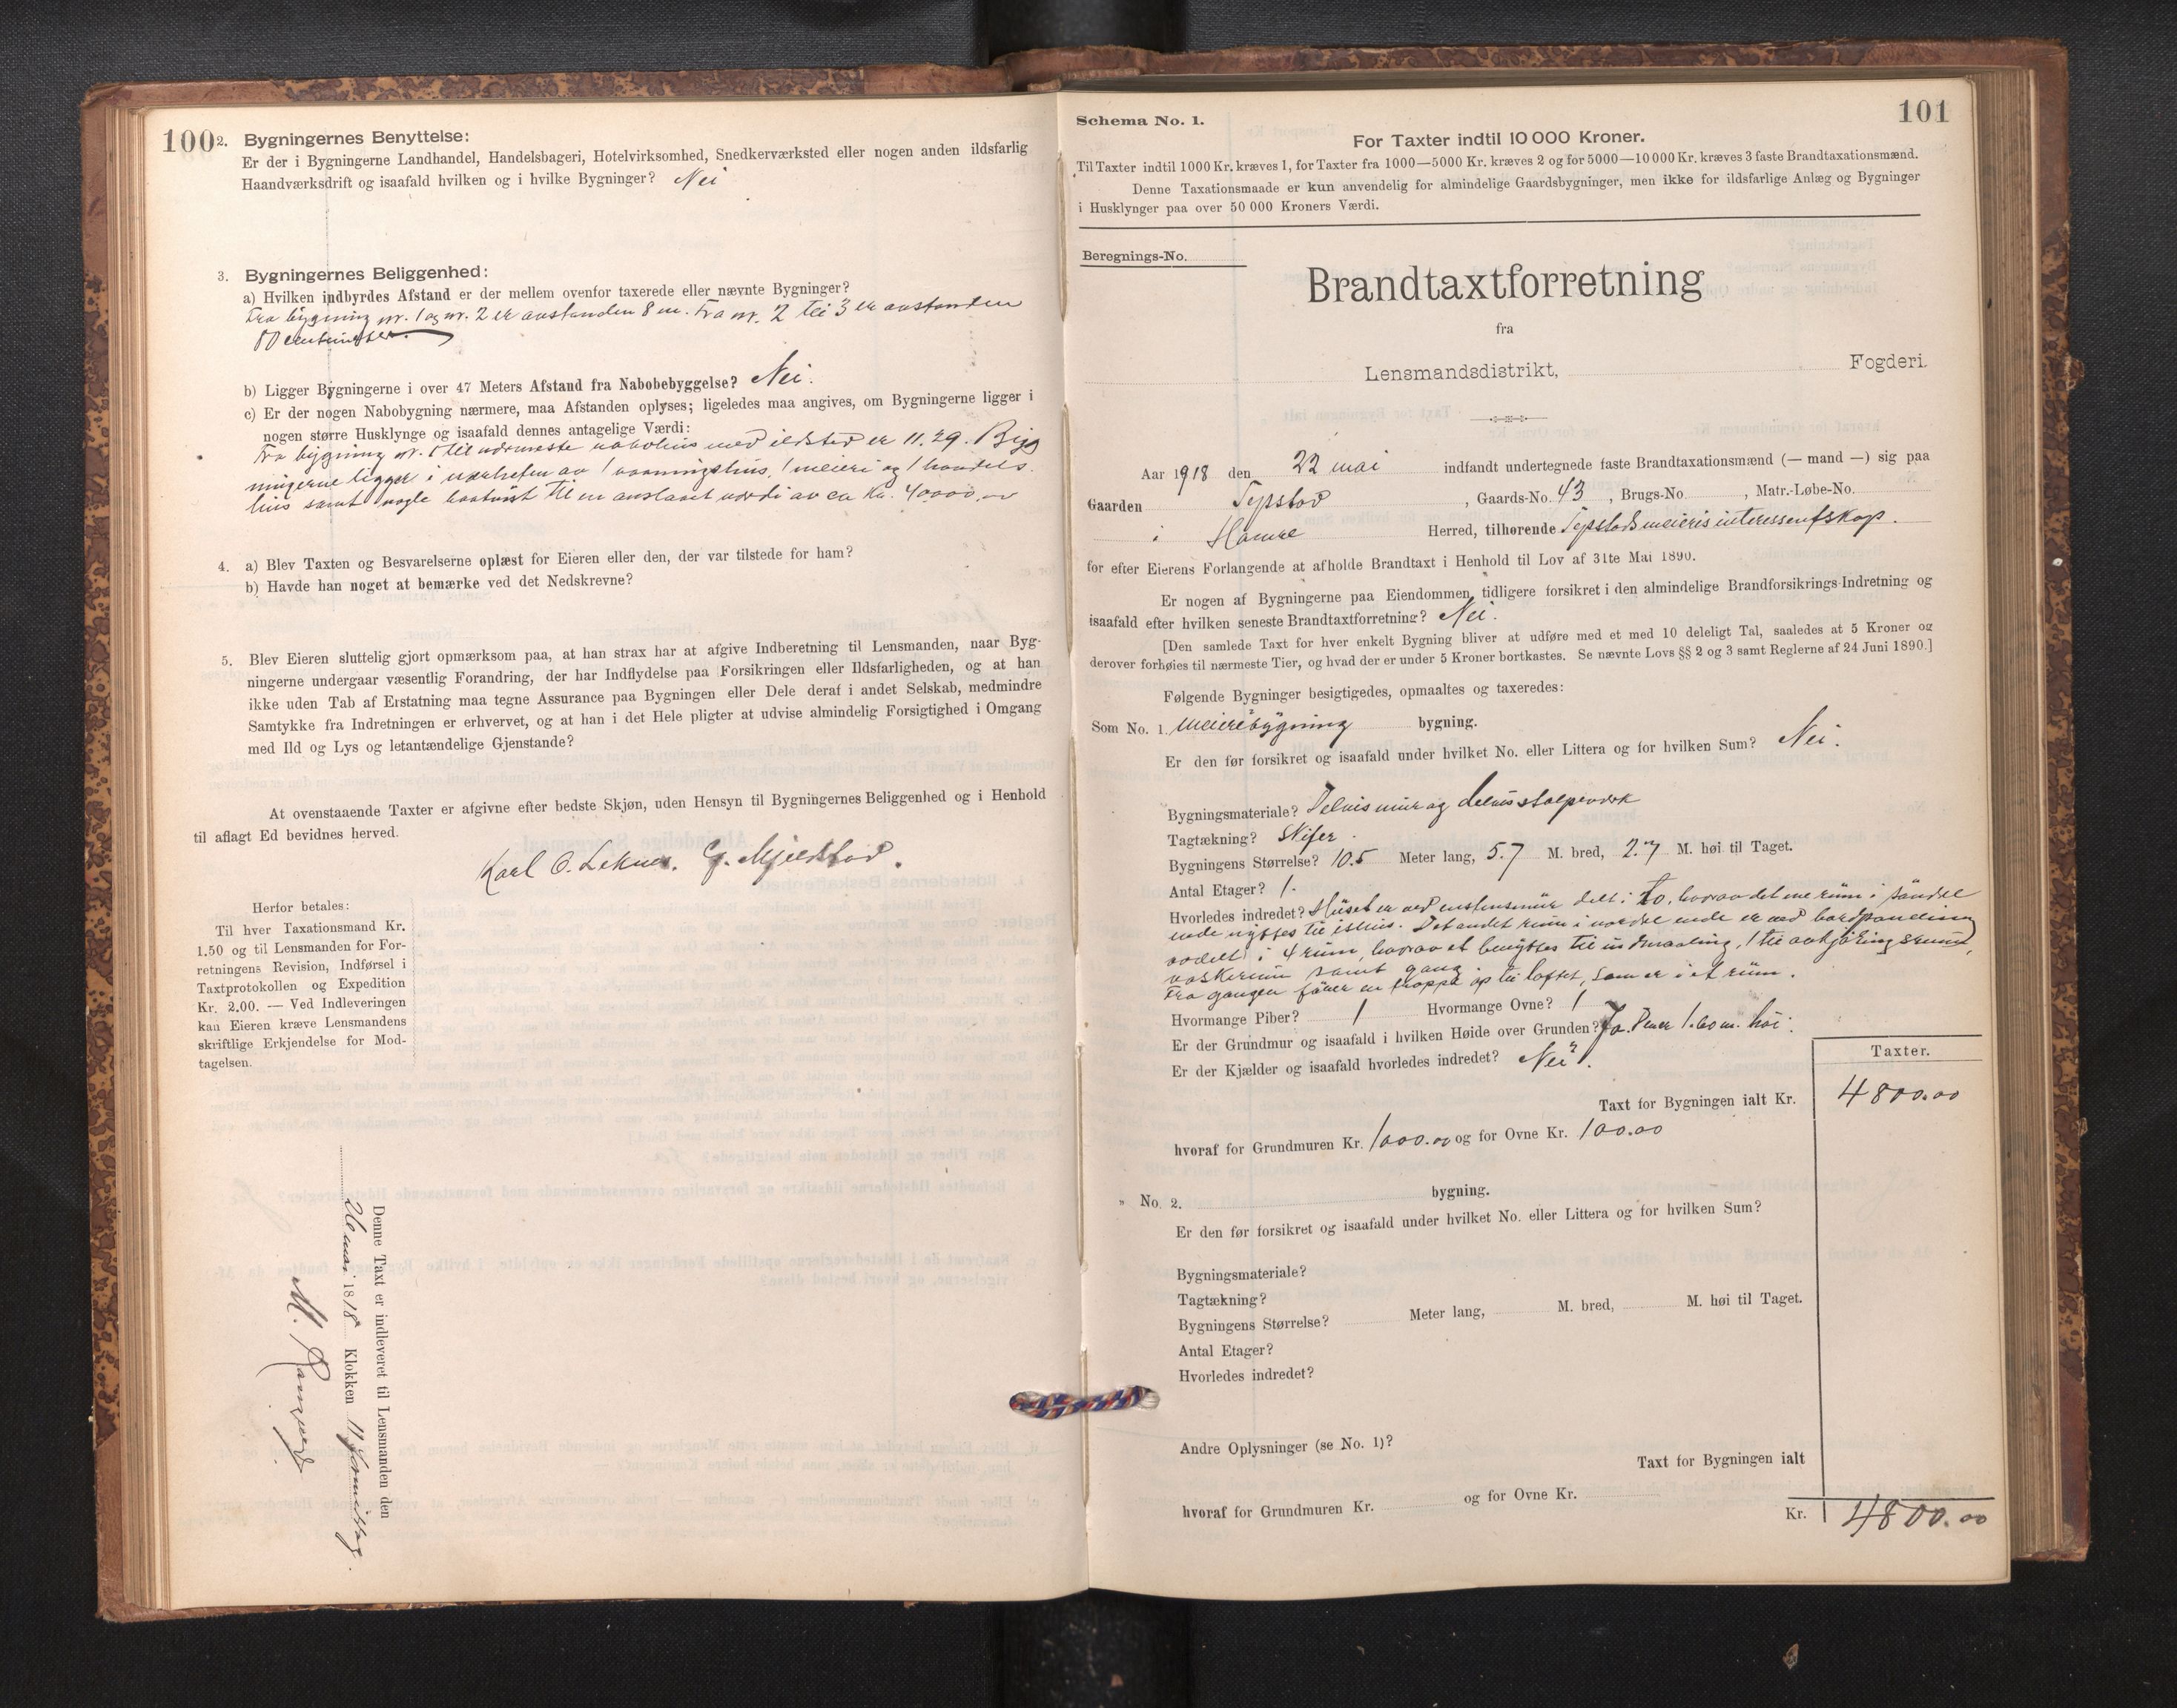 100
2. Bygningernes Benyttelse:
Er der i Bygningerne Landhandel, Handelsbageri, Hotelvirksomhed, Snedkerværksted eller nogen anden ildsfarlig
Haandværksdrift og isaafald hvilken og i hvilke Bygninger? Nei
3. Bygningernes Beliggenhed:
a) Hvilken indbyrdes Afstand er der mellem ovenfor taxerede eller nævnte Bygninger?
Fra bygning nr. 1 og nr. 2 er avstanden 8 m. Fra nr. 2 til 3 er avstanden
80 centimeter.
b) Ligger Bygningerne i over 47 Meters Afstand fra Nabobebyggelse? Nei.
c) Er der nogen Nabobygning nærmere, maa Afstanden oplyses; ligeledes maa angives, om Bygningerne ligger i
nogen større Husklynge og isaafald dennes antagelige Værdi:
Fra bygning nr. 1 til nærmeste nabohus med ildsted er 11.29. Byg
ningerne ligger i nærheten av 1 vaaningshus, 1 meieri og 1 handels
hus samt nogle til en anslaaet værdi av ca Kr. 40000,00
4. a) Blev Taxten og Besvarelserne oplæst for Eieren eller den, der var tilstede for ham?
b) Havde han noget at bemærke ved det Nedskrevne?
5. Blev Eieren sluttelig gjort opmærksom paa, at han strax har at afgive Indberetning til Lensmanden, naar Byg-
ningerne undergaar væsentlig Forandring, der har Indflydelse paa Forsikringen eller Ildsfarligheden, og at han
ikke uden Tab af Erstatning maa tegne Assurance paa Bygningen eller Dele deraf i andet Selskab, medmindre
Samtykke fra Indretningen er erhvervet, og at han i det Hele pligter at udvise almindelig Forsigtighed i Omgang
med Ild og Lys og letantændelige Gjenstande?
At ovenstaaende Taxter er afgivne efter bedste Skjøn, uden Hensyn til Bygningernes Beliggenhed og i Henhold
til aflagt Ed bevidnes herved.
Karl O. Leknes. G. Mjeldstad.
Herfor betales:
Til hver Taxationsmand Kr.
1.50 og til Lensmanden for For-
retningens Revision, Indførsel i
Taxtprotokollen og Expedition
Kr. 2.00. — Ved Indleveringen
kan Eieren kræve Lensmandens
skriftlige Erkjendelse for Mod-
tagelsen.
Denne Taxt er indleveret til Lensmanden den
26 mai 1818 Klokken 11 formiddag.
M.
101
Schema No. 1.
For Taxter indtil 10 000 Kroner.
Til Taxter indtil 1000 Kr. kræves 1, for Taxter fra 1000—5000 Kr. kræves 2 og for 5000—10 000 Kr. kræves 3 faste Brandtaxationsmænd.
Denne Taxationsmaade er kun anvendelig for almindelige Gaardsbygninger, men ikke for ildsfarlige Anlæg og Bygninger
i Husklynger paa over 50 000 Kroners Værdi.
Beregnings-No.
Brandtaxtforretning
fra
Lensmandsdistrikt, Fogderi.
Aar 1918 den 22 mai indfandt undertegnede faste Brandtaxationsmænd (— mand —) sig paa
Gaarden Tepstad, Gaards-No. 43, Brugs-No. , Matr.-Løbe-No.
i Hamre Herred, tilhørende Tepstads meieris interessentskap.
for efter Eierens Forlangende at afholde Brandtaxt i Henhold til Lov af 31te Mai 1890.
Er nogen af Bygningerne paa Eiendommen tidligere forsikret i den almindelige Brandforsikrings-Indretning og
isaafald efter hvilken seneste Brandtaxtforretning? Nei.
[Den samlede Taxt for hver enkelt Bygning bliver at udføre med et med 10 deleligt Tal, saaledes at 5 Kroner og
derover forhøies til nærmeste Tier, og hvad der er under 5 Kroner bortkastes. Se nævnte Lovs §§ 2 og 3 samt Reglerne af 24 Juni 1890.]
Følgende Bygninger besigtigedes, opmaaltes og taxeredes:
Som No. 1. Meieribygning bygning.
Er den før forsikret og isaafald under hvilket No. eller Littera og for hvilken Sum? Nei.
Bygningsmateriale? Delvis mur og delvis stolpeverk
Tagtækning? Skifer.
Bygningens Størrelse? 10.5 Meter lang, 5.7 M. bred, 2.7 M. høi til Taget.
Antal Etager? 1.
Hvorledes indredet? Huset er ved enstensmur delt i to, hvorav det ene rum i søndre
ende nyttes til ishus. Det andet rum i nordre ende er ved bordpaneling
avdelt i 4 rum, hvorav et benyttes til indmaaling, 1 til avkjølingsrum,
vaskerum samt gang
Fra gangen fører en trappe op til loftet, som er i et rum.
Hvormange Piber? 1 Hvormange Ovne? 1
Er der Grundmur og isaafald i hvilken Høide over Grunden? Ja. Den er 1.60 m. høi.
Er der Kjælder og isaafald hvorledes indredet? Nei.
Taxter.
Taxt for Bygningen ialt Kr. 4800.00
hvoraf for Grundmuren Kr. 1000.00 og for Ovne Kr. 100.00
" No. 2. bygning.
Er den før forsikret og isaafald under hvilket No. eller Littera og for hvilken Sum?
Bygningsmateriale?
Tagtækning?
Bygningens Størrelse? Meter lang, M. bred, M. høi til Taget.
Antal Etager?
Hvorledes indredet?
Andre Oplysninger (se No. 1)?
Taxt for Bygningen ialt
hvoraf for Grundmuren Kr. og for Ovne Kr.
Kr. 4800.00